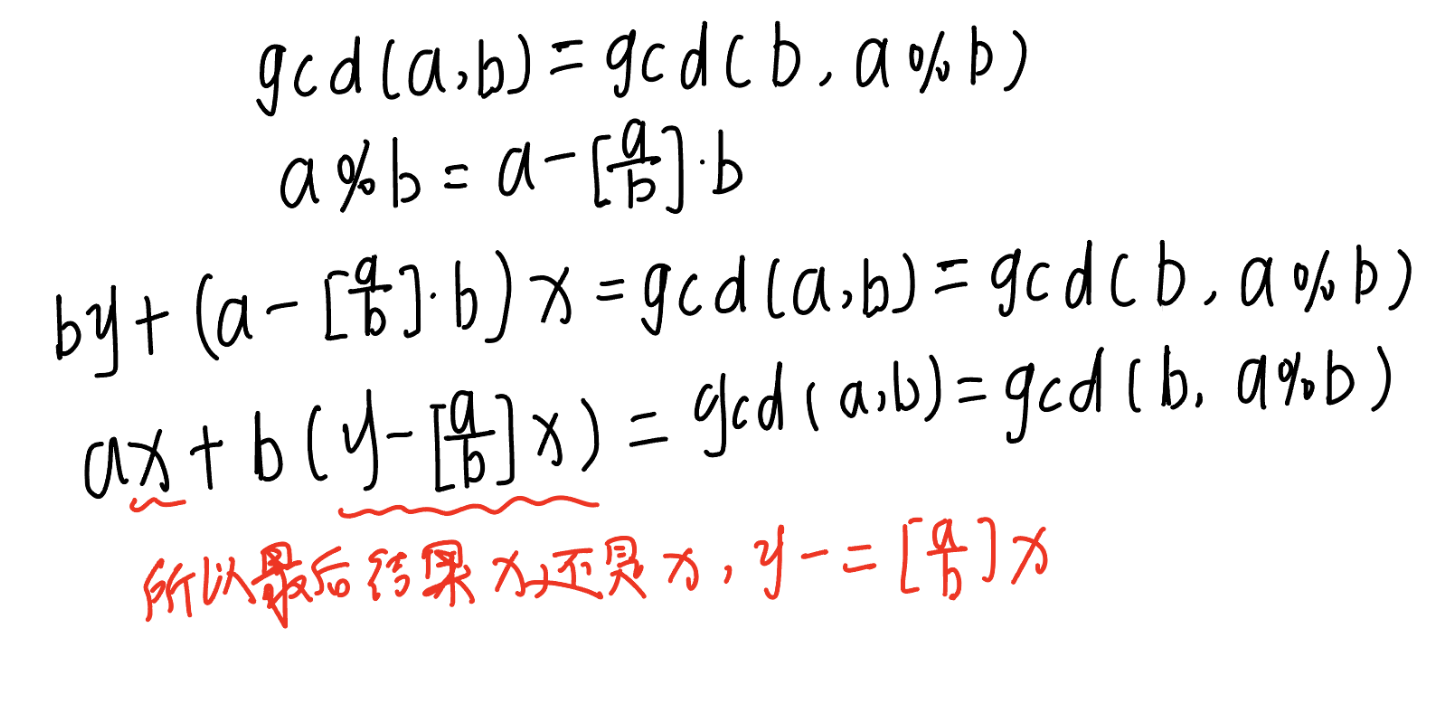 gcd(a,b)=gcd(b,a%b)
a%b=a-[a/b]·b
by+(a-[a/b]·b)x=gcd(a,b)=gcd(b,a%b)
ax+b(y-[a/b]x)=gcd(a,b)=gcd(b,a%b)
所以最后结果x还是x,y-=[a/b]x